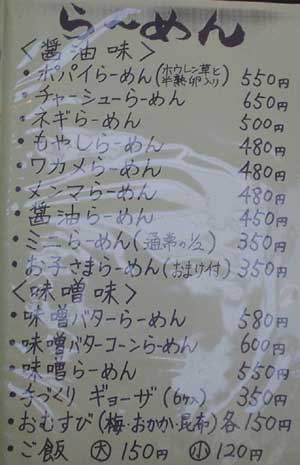 らーめん
＜醤油味＞
・ポパイらーめん(ホウレン草と半熟卵入り) 550円
・チャーシューらーめん 650円
・ネギらーめん 500円
・もやしらーめん 480円
・ワカメらーめん 480円
・メンマらーめん 480円
・醤油らーめん 450円
・ミニらーめん(通常の½) 350円
・お子さまらーめん(おまけ付) 350円
＜味噌味＞
・味噌バターらーめん 580円
・味噌バターコーンらーめん 600円
・味噌らーめん 550円
・手づくり ギョーザ(6ケ入) 350円
・おむすび(梅・おかか・昆布)各150円
・ご飯 大 150円 小 120円